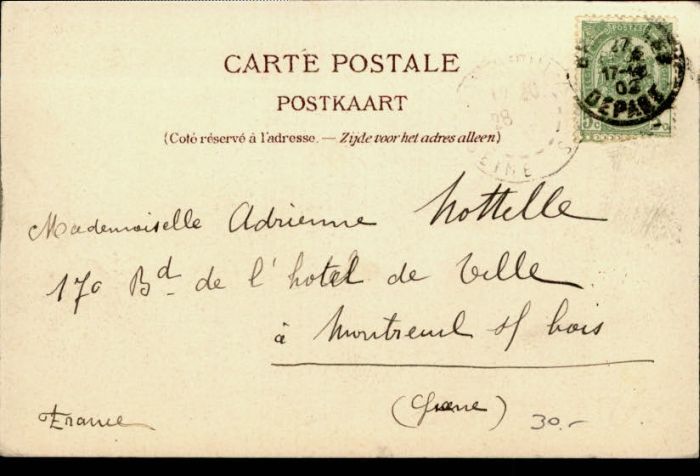 CARTE POSTALE
POSTKAART
(Coté réservé à l'adresse. — Zijde voor het adres alleen)
27
17-18
02
DEPART
28
SEINE
Mademoiselle Adrienne Nottelle
170 Bd de l'hotel de Ville
à Montreuil s/ bois
(Seine)
France
30.-